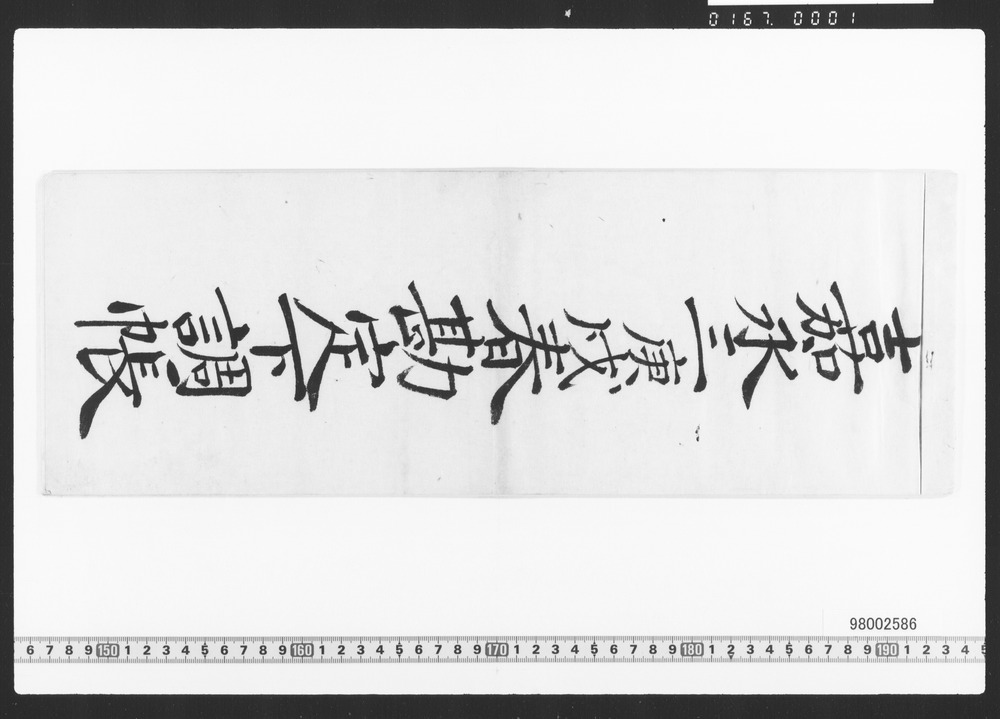 0167.0001
嘉永三庚戌春勘定下調帳
98002586
6 7 8 9 150 1 2 3 4 5 6 7 8 9 160 1 2 3 4 5 6 7 8 9 170 1 2 3 4 5 6 7 8 9 180 1 2 3 4 5 6 7 8 9 190 1 2 3 4